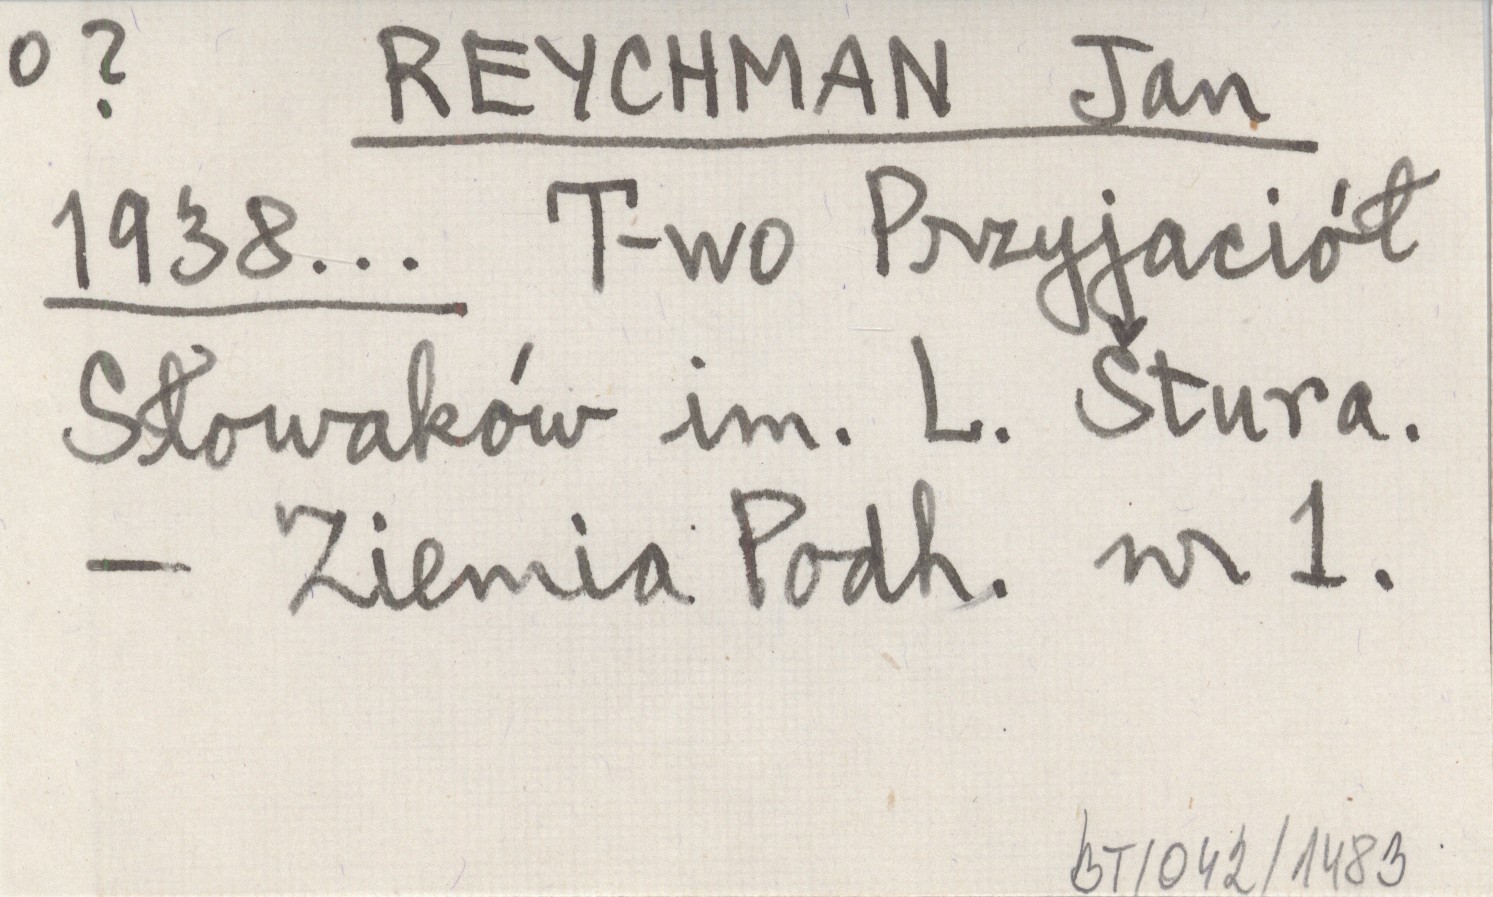 o ? REYCHMAN Jan
1938... T-wo Przyjaciół
Słowaków im. L. Štura.
— Ziemia Podh. nr 1.
BT/042/1483